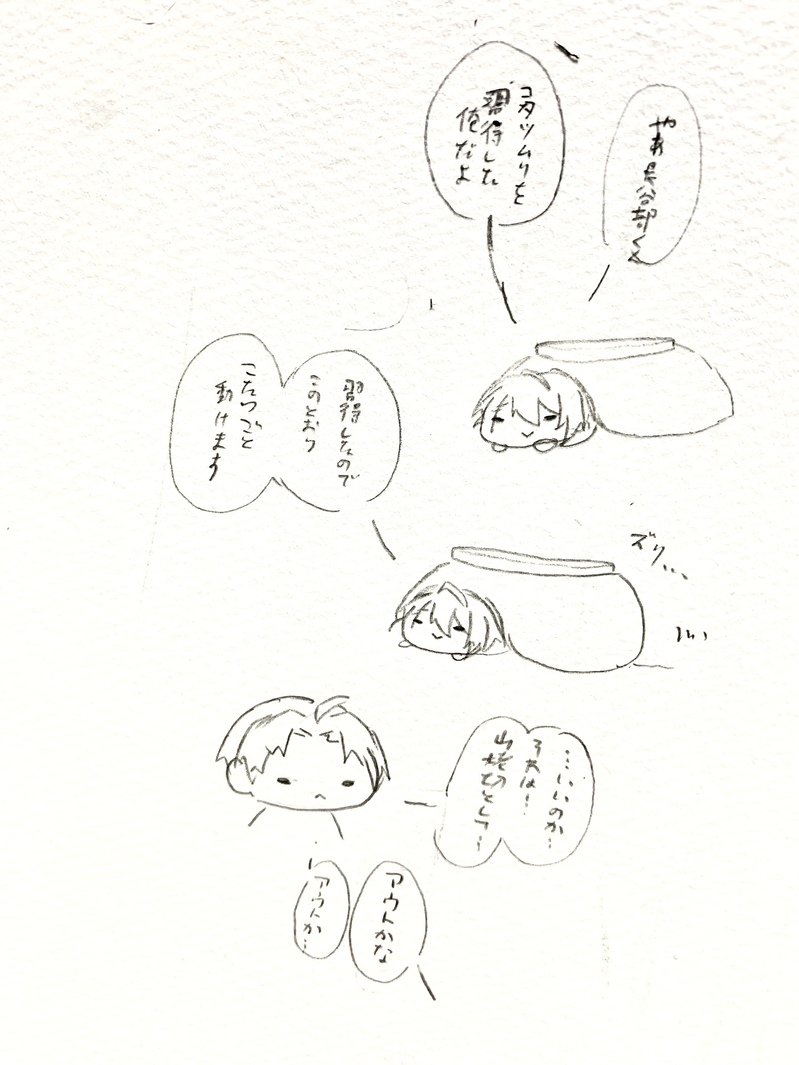 やあ長谷部くん
コタツムリを
習得した
俺だよ
習得したので
このとおり
こたつごと
動けます
ズリ…
…いいのか…
それは…
山姥切として…
アウトかな
アウトか…